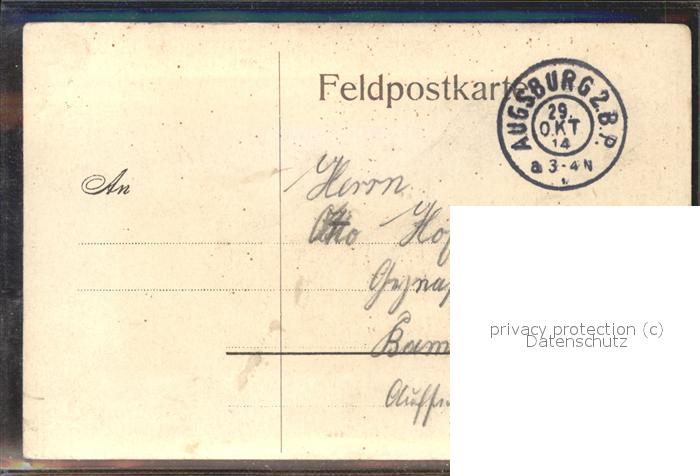 Feldpostkarte
AUGSBURG 2. B.P.
29.
OKT
14
a 3-4 N
An
Herrn
Otto Hof
Bam
privacy protection (c)
Datenschutz